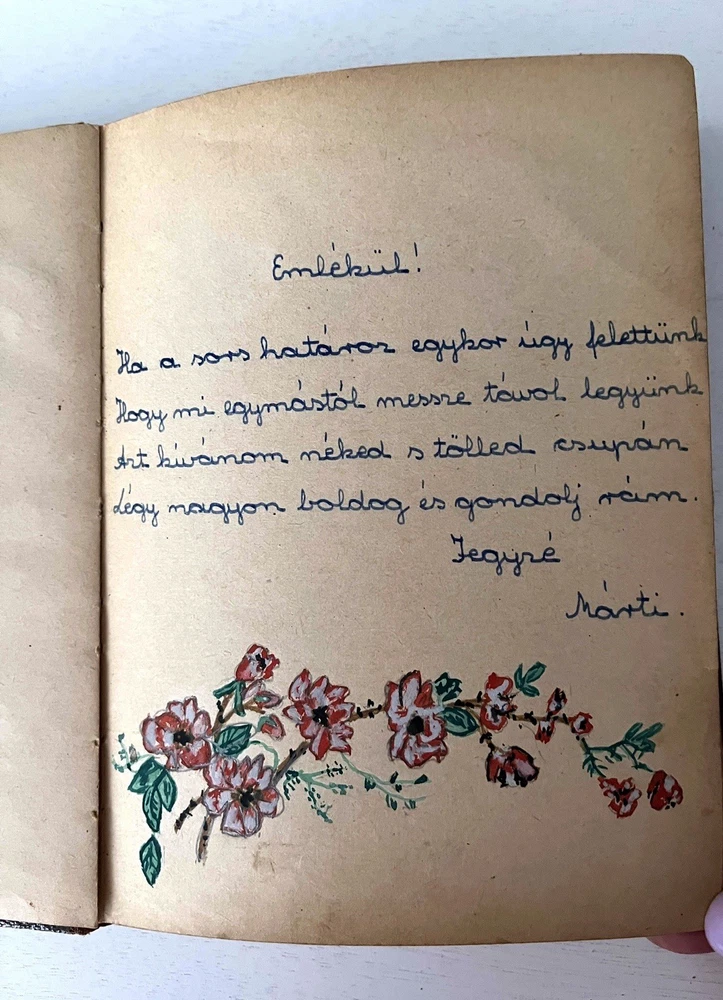 Emlékül!
Ha a sors határoz egykor úgy felettünk
Hogy mi egymástól messze távol legyünk
Azt kívánom néked s tölled csupán
Légy nagyon boldog és gondolj rám.
Jegyzé
Márti.